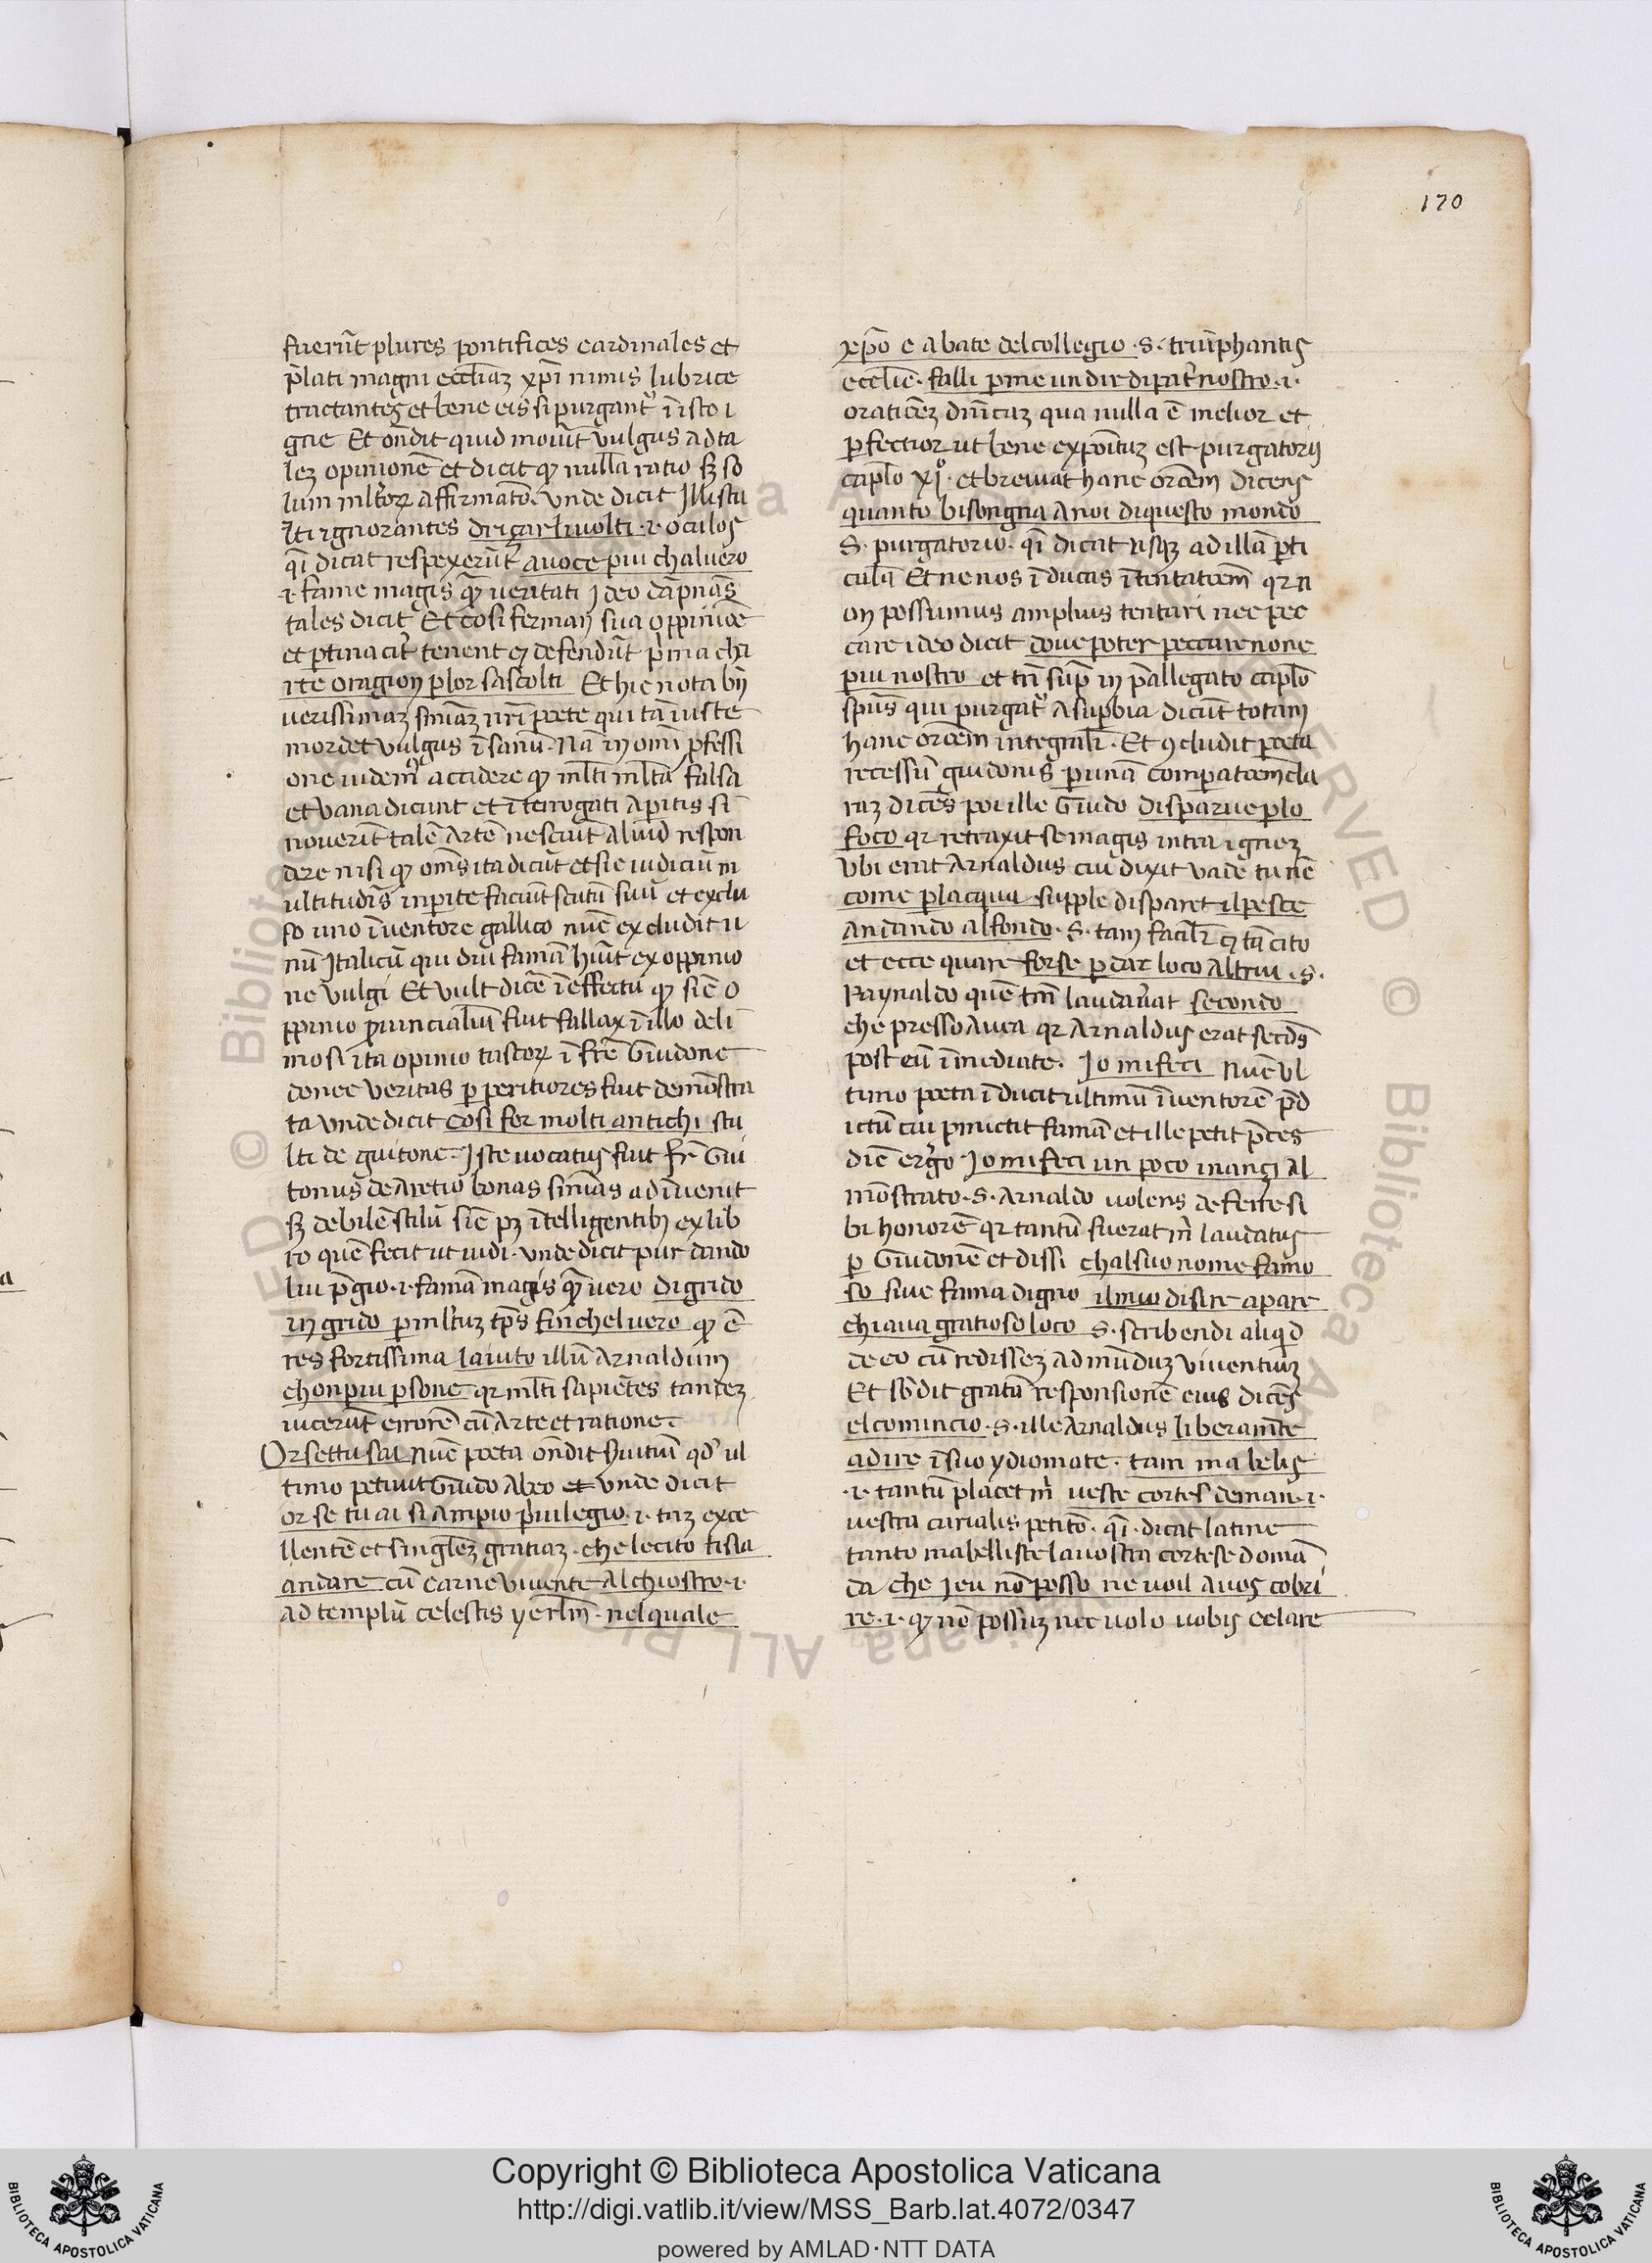 170
fuerūt plures pontifices cardinales et
p̄lati magni eccl̄iaȝ xp̄i nimis lubrice
tractantes et bene eis si purgant̄ ī isto i
gne Et oñdit quid mouīt vulgus ad ta
leȝ opinionē et dicit qꝫ nulla ratio sȝ so
lum ml̄torꝝ affirmatō. vnde dicit Illi stu
lti ignorantes driçar li uolti .i. oculos
qī dicat respexerūt avoce piu chaluero
.i. fame magis qꝫ ueritati Ideo dāpnās
tales dicit Et cosi ferman sua oppiniōe
et ꝑtinacit̄ tenent ⁊ defendūt prima chi
rte oragion ꝑlor sascolti Et hic nota bn̄
uerissimaȝ sn̄iaȝ nr̄i poete qui tā iuste
mordet vulgus ī sanū. Nā in omī ꝓfessi
one uidemꝰ accidere qꝫ ml̄ti ml̄ta falsa
et vana dicunt et īterrogati aperitis si
nouerīt talē Artē nesciūt aliud respon
dere nisi qꝫ om̄s ita dicūt et sic iudiciū m
ultitudīs inperite faciūt scutū suū et exclu
so uno īuentore gallico nūc excludit u
nū Italicū qui diu famā hīuit ex oppinio
ne vulgi Et vult dicē īeffectu qꝫ sic o
ppinio ꝓuincialiū fuit fallax ī illo deli
mosi ita opinio tuscorꝝ ī fr̄e Guidone
donec veritas ꝑ peritiores fuit demōstra
ta vnde dicit cosi fer molti antichi stu
lti de guitone. Iste uocatus fuit fr̄ Gui
tonus de Aretio bonas sn̄ias ad īuenit
sȝ debilē stilū sic pȝ ītelligentibꝫ ex lib
ro quē fecit ut uidi. vnde dicit pur dando
lui p̄gio .i. famā magis qꝫ uero di grido
in grido ꝑ ml̄tuȝ tp̄s finchel uero qꝫ ē
res fortissima laiuto illū Arnaldum
chon piu ꝑsone qꝛ ml̄ti sapiētes tandeȝ
uicerūt errorē cū Arte et ratione.
Or settu sai nūc poeta oñdit Suitiū qd̄ ul
timo petiuit Guido Abeo et vnde dicit
or se tu ai si Ampio priuilegio .i. taȝ exce
llentē et singl̄eȝ gratiaȝ. che lecito ti sia
andare cū carne viuente Alchiostro .i.
ad templū celestis yerlm̄. nel quale
xp̄o e abate del collegio .s. triūphantis
eccl̄ie. falli ꝑ me un dir di pat̄ nostro .i.
oratiōeȝ dn̄icaȝ qua nulla ē melior et
ꝑfectior ut bene expoītuȝ est purgatorij
capl̄o xj°. et breuiat hanc orōem dicens
quanto bisongna Anoi di questo mondo
S. purgatorio. qī dicat usqȝ ad illā ꝑti
culā Et ne nos īducas ī tentatōem qꝛ n
on possumus amplius tentari nec pec
care ideo dicit doue poter peccare none
piu nostro et tn̄ sup̄ in p̄allegato capl̄o
spūs qui purgat̄ Asuꝑbia dicūt totam
hanc orōem integral̄r. Et ꝯcludit poeta
recessū guidonis ꝑ unā comperatōem cla
raȝ dicēs poi ille Guido disparue ꝑ lo
foco qꝛ retraxit se magis intra igneȝ
vbi erat Arnaldus cui dixit vade tu nē
come ꝑ lacqua supple disparet il pesce
Andando al fondo. S. tam facil̄r ⁊ tā cito
et ecce quare forse ꝑ dar loco Altrui .s.
Raynaldo quē tm̄ laudau̅at secondo
che presso Auea qꝛ Arnaldus erat secdꝰs
post eū īmediate. Io mi feci Nūc vl
timo poeta īducit ultimū īuentorē p̄d
ictū cui pmictit famā et ille petit p̄ces
diē ergo Io mi feci un poco inançi Al
mōstrato. S. Arnaldo uolens deferre si
bi honorē qꝛ tantū fuerat m̄ laudatus
ꝑ Guidonē et dissi chal suo nome famo
so siue fama digno il mio disire apare
chiaua gratioso loco S. scribendi aliqd̄
de eo cū redisseȝ ad mūduȝ viuentiuȝ
Et sb̄dit gratā responsionē eius dicēs
el comincio. S. ille Arnaldus liberamēte
adire ī suo ydiomate. tam ma belis
.i. tantū placet m̄ ueste cortes deman .i.
uestra curialis petitō. qī. dicat latine
tanto mabelliste la uostra cortese domā
da che Ieu nō posso ne uoil Auos cobri
re .i. qꝫ nō possuȝ nec uolo uobis celare
© Biblioteca Apostolica Vaticana ALL RIGHTS RESERVED
Copyright © Biblioteca Apostolica Vaticana
http://digi.vatlib.it/view/MSS_Barb.lat.4072/0347
powered by AMLAD·NTT DATA
BIBLIOTECA APOSTOLICA VATICANA
BIBLIOTECA APOSTOLICA VATICANA